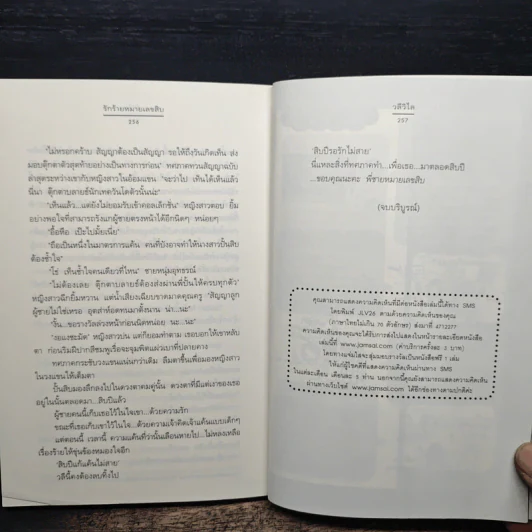 รักร้ายหมายเลขสิบ
256
"ไม่หรอกคร้าบ สัญญาต้องเป็นสัญญา รอให้ถึงวันเกิดเห็น ส่ง
มอบตุ๊กตาตัวสุดท้ายอย่างเป็นทางการก่อน" ทศภาคทวนสัญญาฉบับ
ล่าสุดระหว่างเขากับหญิงสาวในอ้อมแขน "จะว่าไป เห็นได้เห็นแล้ว
นี่นา ตุ๊กตาบลายธ์นักเทควันโดตัวนั้นน่ะ"
"เห็นแล้ว...แต่ยังไม่ยอมรับเข้าคอลเล็กชัน" หญิงสาวตอบ ยิ้ม
อย่างพอใจที่สามารถรังแกผู้ชายตรงหน้าได้อีกนิดๆ หน่อยๆ
"อื้อหือ เป๊ะไปมั้ยเนี่ย"
"ถือเป็นหนึ่งในมาตรการแค้น คนที่บังอาจทำให้นางสาวปั้นสิบ
ต้องช้ำใจ"
"โธ่ เห็นช้ำใจคนเดียวที่ไหน" ชายหนุ่มอุทธรณ์
"ไม่ต้องเลย ตุ๊กตาบลายธ์ต้องส่งผ่านพี่ปั้นให้ครบทุกตัว"
หญิงสาวกัดยิ้มหวาน แต่น้ำเสียงเฉียบขาดมาดคุณครู "สัญญาลูก
ผู้ชายไม่ใช่เหรอ อุตส่าห์อดทนมาตั้งนาน น่า...นะ"
"งั้น...ขอรางวัลล่วงหน้าก่อนนิดหน่อย นะ...นะ"
"ขอแงซะมัด" หญิงสาวบ่น แต่ก็ยอมทำตาม เธอบอกให้เขาหลับ
ตา ก่อนริมฝีปากสีชมพูเรื่อจะจุมพิตแผ่วเบาที่ปลายคาง
ทศภาคกระชับวงแขนแน่นกว่าเดิม ลืมตาขึ้นเพื่อมองหญิงสาว
ในวงแขนให้เต็มตา
ปั้นสิบมองลึกลงไปในดวงตาคมคู่นั้น ดวงตาที่มีแต่เงาของเธอ
อยู่ในนั้นตลอดมา...สิบปีแล้ว
ผู้ชายคนนี้เก็บเธอไว้ในใจเขา...ด้วยความรัก
ขณะที่เธอเก็บเขาไว้ในใจ...ด้วยความเจ้าคิดเจ้าแค้นแบบเด็กๆ
แต่ตอนนี้ เวลานี้ ความแค้นที่ว่านั้นเลือนหายไป...ไม่หลงเหลือ
เรื่องร้ายให้ขุ่นข้องหมองใจอีก
'สิบปีแก้แค้นไม่สาย'
วลีนี้คงต้องลบทิ้งไป
วลีวิไล
257
'สิบปีรอรักไม่สาย'
นี่แหละสิ่งที่ทศภาคทำ...เพื่อเธอ...มาตลอดสิบปี
...ขอบคุณนะคะ พี่ชายหมายเลขสิบ
(จบบริบูรณ์)
คุณสามารถแสดงความคิดเห็นที่มีต่อหนังสือเล่มนี้ได้ทาง SMS
โดยพิมพ์ JLV26 ตามด้วยความคิดเห็นของคุณ
(ภาษาไทยไม่เกิน 70 ตัวอักษร) ส่งมาที่ 4712277
ความคิดเห็นของคุณจะได้รับการส่งไปแสดงในหน้ารายละเอียดหนังสือ
เล่มนี้ที่ www.jamsai.com (ค่าบริการครั้งละ 3 บาท)
โดยทางแจ่มใสจะสุ่มมอบรางวัลเป็นหนังสือฟรี 1 เล่ม
ให้แก่ผู้โชคดีที่แสดงความคิดเห็นผ่านทาง SMS
ในแต่ละเดือน เดือนละ 5 ท่าน นอกจากนี้คุณยังสามารถแสดงความคิดเห็น
ผ่านทางเว็บไซต์ www.jamsai.com ได้อีกช่องทางตามปกติค่ะ